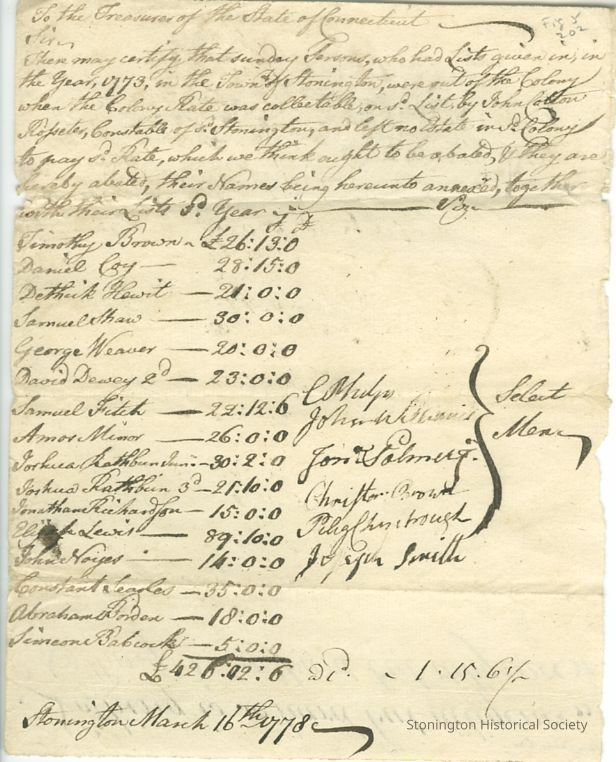 To the Treasurer of the State of Connecticut
Sir
These may certify, that sunday Persons, who had Lists given in, in
the Year, 1773, in the Town of Stonington, were out of the Colony
when the Colony Rate was collectable, on sd. List, by John Cotton
Rosseter, Constable of sd. Stonington, and left no Estate in sd. Colony
to pay sd. Rate, which we think ought to be abated, & they are
hereby abated, their Names being hereunto annexed, together
with their Lists sd. Year Viz
£ s d
Timothy Brown - £26:13:0
Daniel Coy — 28:15:0
Dethick Hewit — 21:0:0
Samuel Shaw — 30:0:0
George Weaver — 20:0:0
David Dewey 2d — 23:0:0
Samuel Fitch — 22:12:6
Amos Minor — 26:0:0
Joshua Rathbun Junr. - 30:2:0
Joshua Rathbun 3d - 21:10:0
Jonathan Richardson - 15:0:0
Lewis — 89:10:0
John Noyes — 14:0:0
Constant Seagles - 35:0:0
Abraham Borden — 18:0:0
Simeon Babcock — 5:0:0
£426:02:6 — 1:15:6
C Phelps
John
Jona. Palmer Jr.
Christor. Brown
Peleg Chesebrough
Joseph Smith
Select
Men
Stonington March 16th 1778
Stonington Historical Society